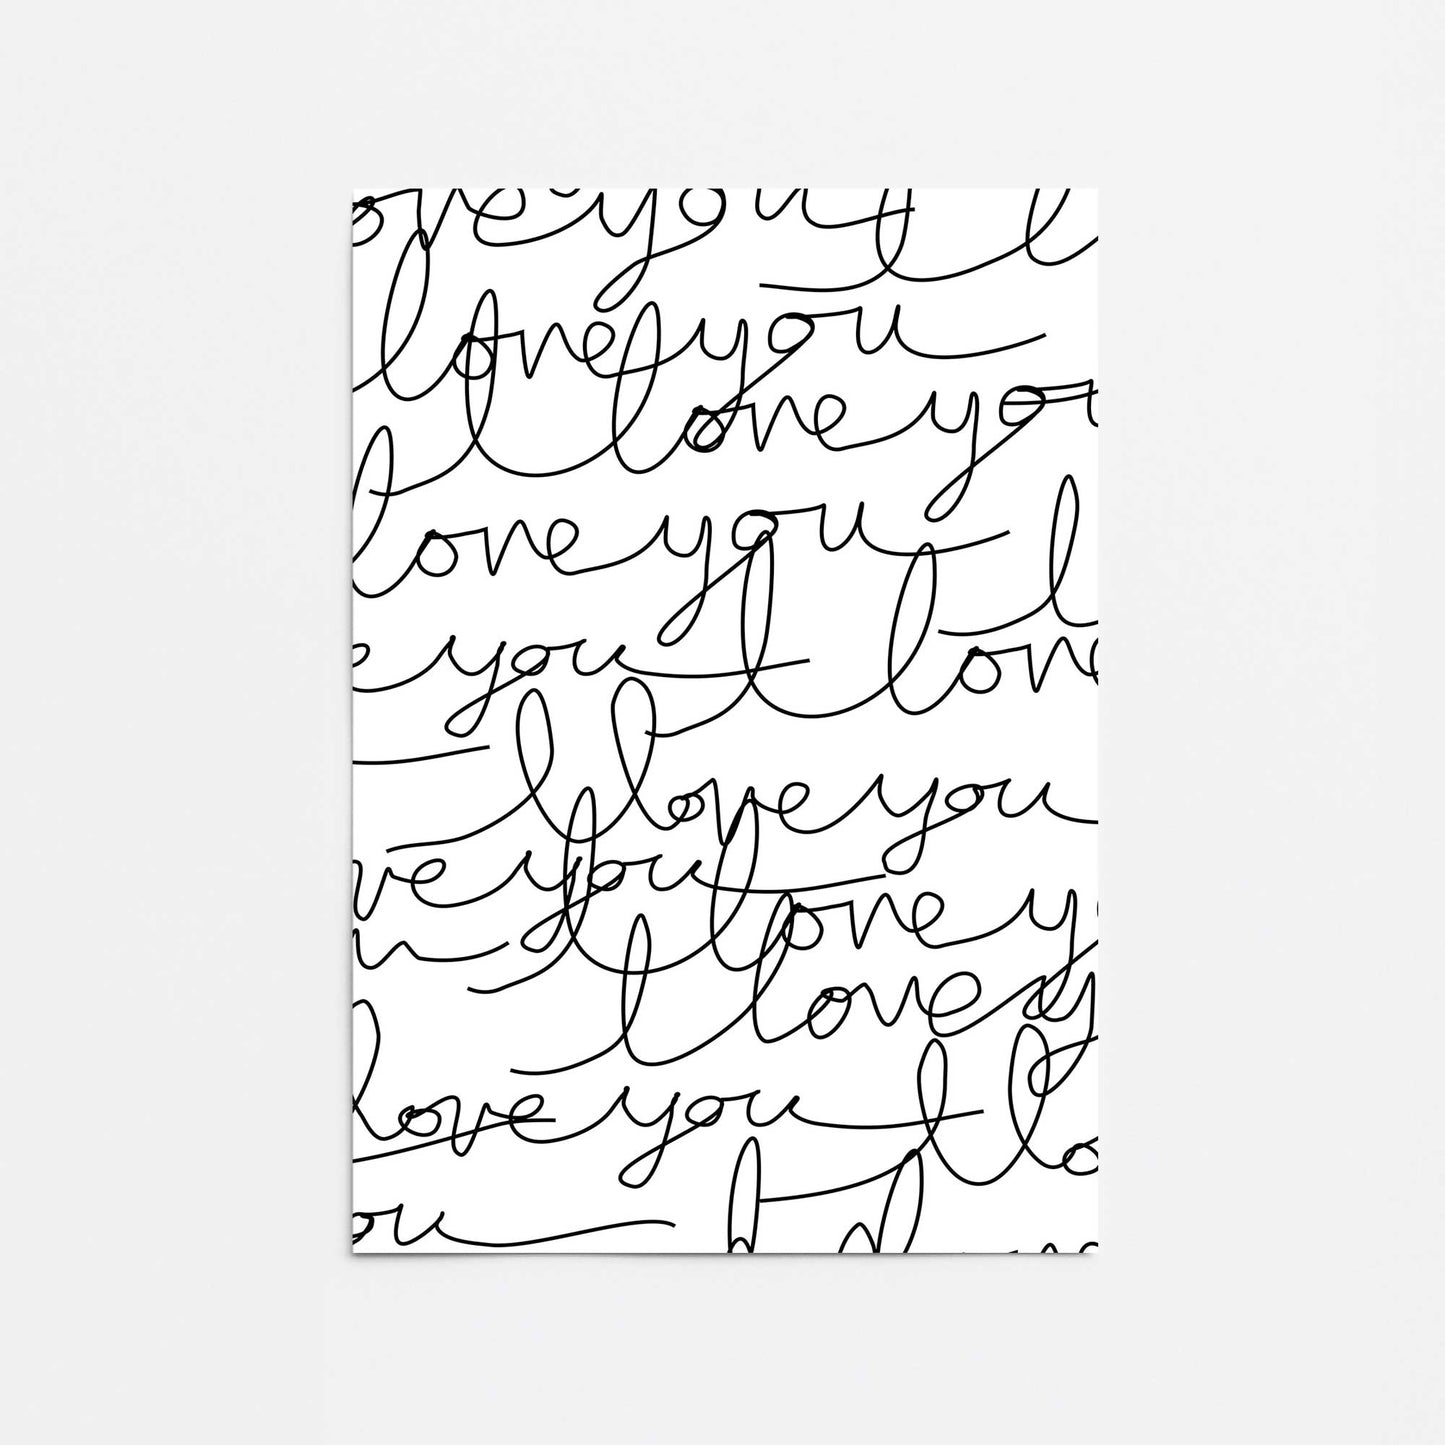 ove you I l
love you
I love you
love you I
e you I love
I love you
ve you I love y
u I love y
love you I lo
ou